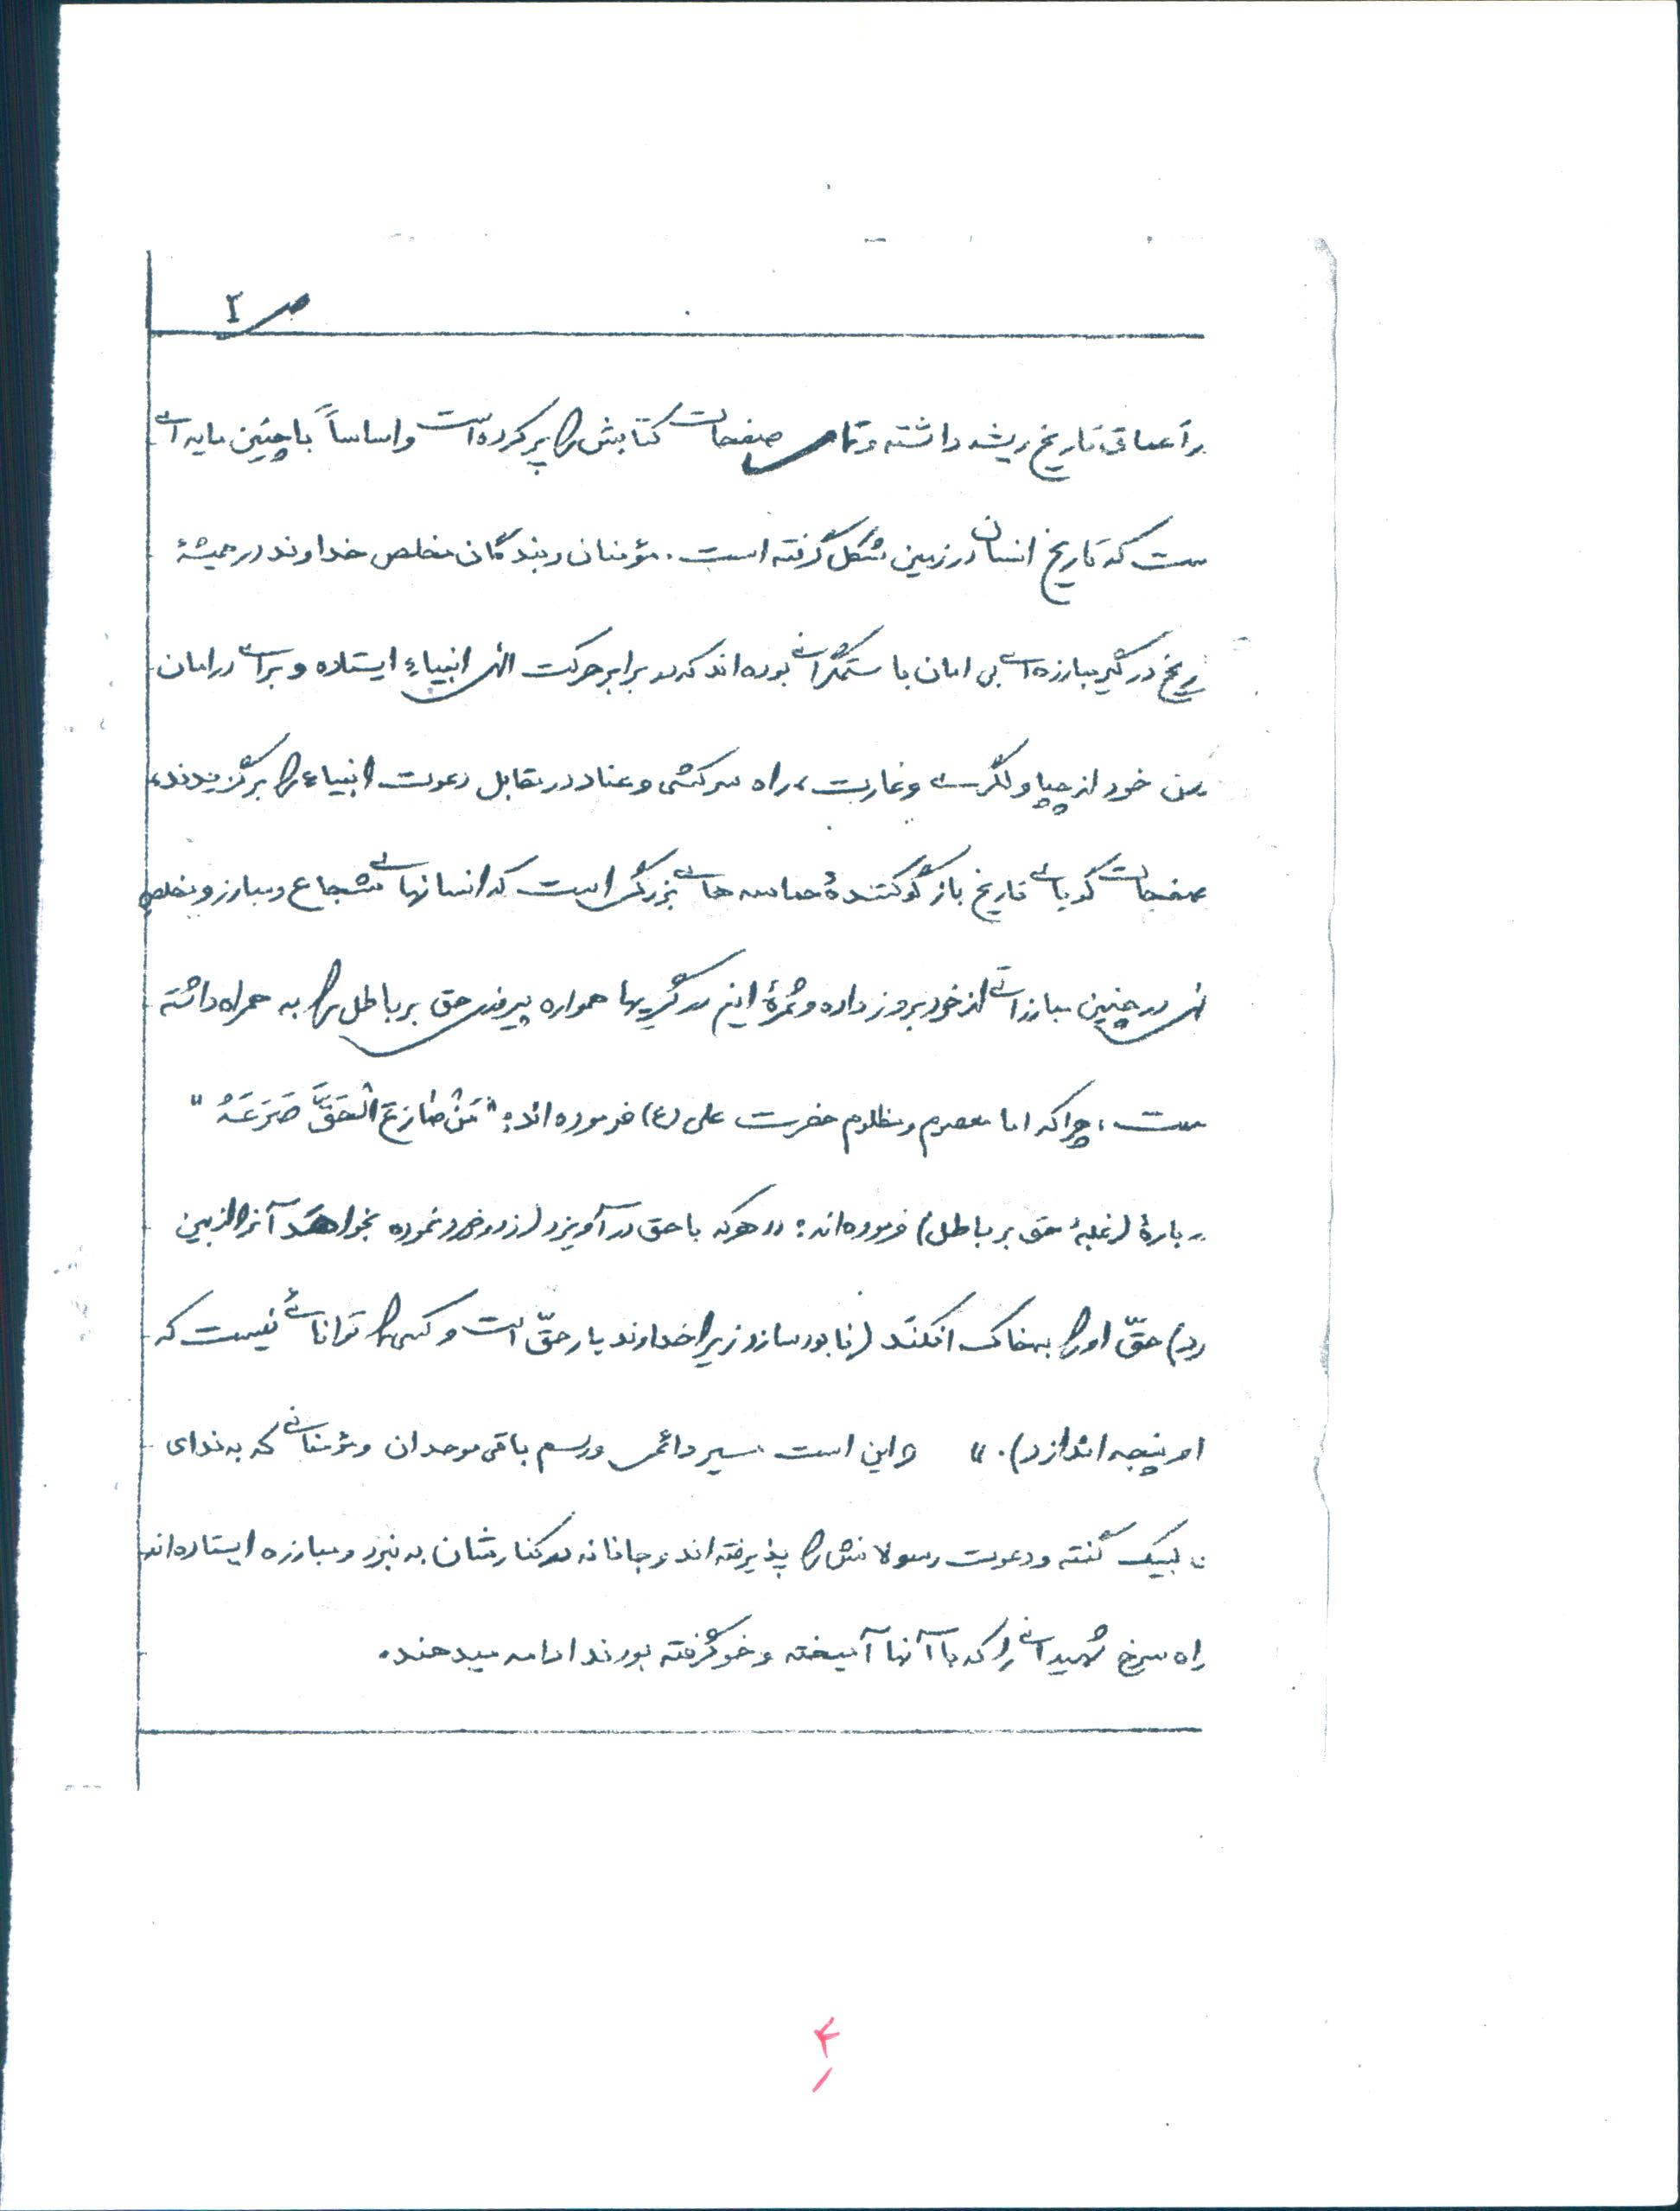 ص ۲
در اعماق تاریخ ریشه داشته و تمامی صفحات کتابش را پر کرده است و اساساً با چنین مایه ای
ست که تاریخ انسان در زمین شکل گرفته است. مؤمنان و بندگان مخلص خداوند در همیشهٔ
ریخ درگیر مبارزه ای بی امان با ستمگرانی بوده اند که در برابر حرکت الهی انبیاء ایستاده و برای در امان
خود از چپاولگری و غارت، راه سرکشی و عناد در مقابل دعوت انبیاء را برگزیدند،
صفحات گویای تاریخ بازگو کنندهٔ حماسه های بزرگی است که انسانهای شجاع و مبارز و مخلص
در چنین مبارزاتی از خود بروز داده و ثمرهٔ این درگیریها همواره پیروزی حق بر باطل را به همراه داشته
ست، چرا که امام معصوم و مظلوم حضرت علی (ع) فرموده اند: "مَنْ صٰارَعَ الْحَقَّ صَرَعَهُ"
ر بارهٔ (غلبهٔ حق بر باطل) فرموده اند: «هر که با حق در آویزد (زد و خورد نموده بخواهد آنرا از بین
رد) حقّ او را به خاک افکند (نابود سازد زیرا خداوند یار حقّ است و کسی را توانائی نیست که
او پنجه اندازد).» و این است سیر دائمی و رسم باقی موحدان و مؤمنانی که به ندای
لبیک گفته و دعوت رسولانش را پذیرفته اند و جانانه در کنارشان به نبرد و مبارزه ایستاده اند
راه سرخ شهیدانی را که با آنها آمیخته و خو گرفته بودند ادامه میدهند.
۴